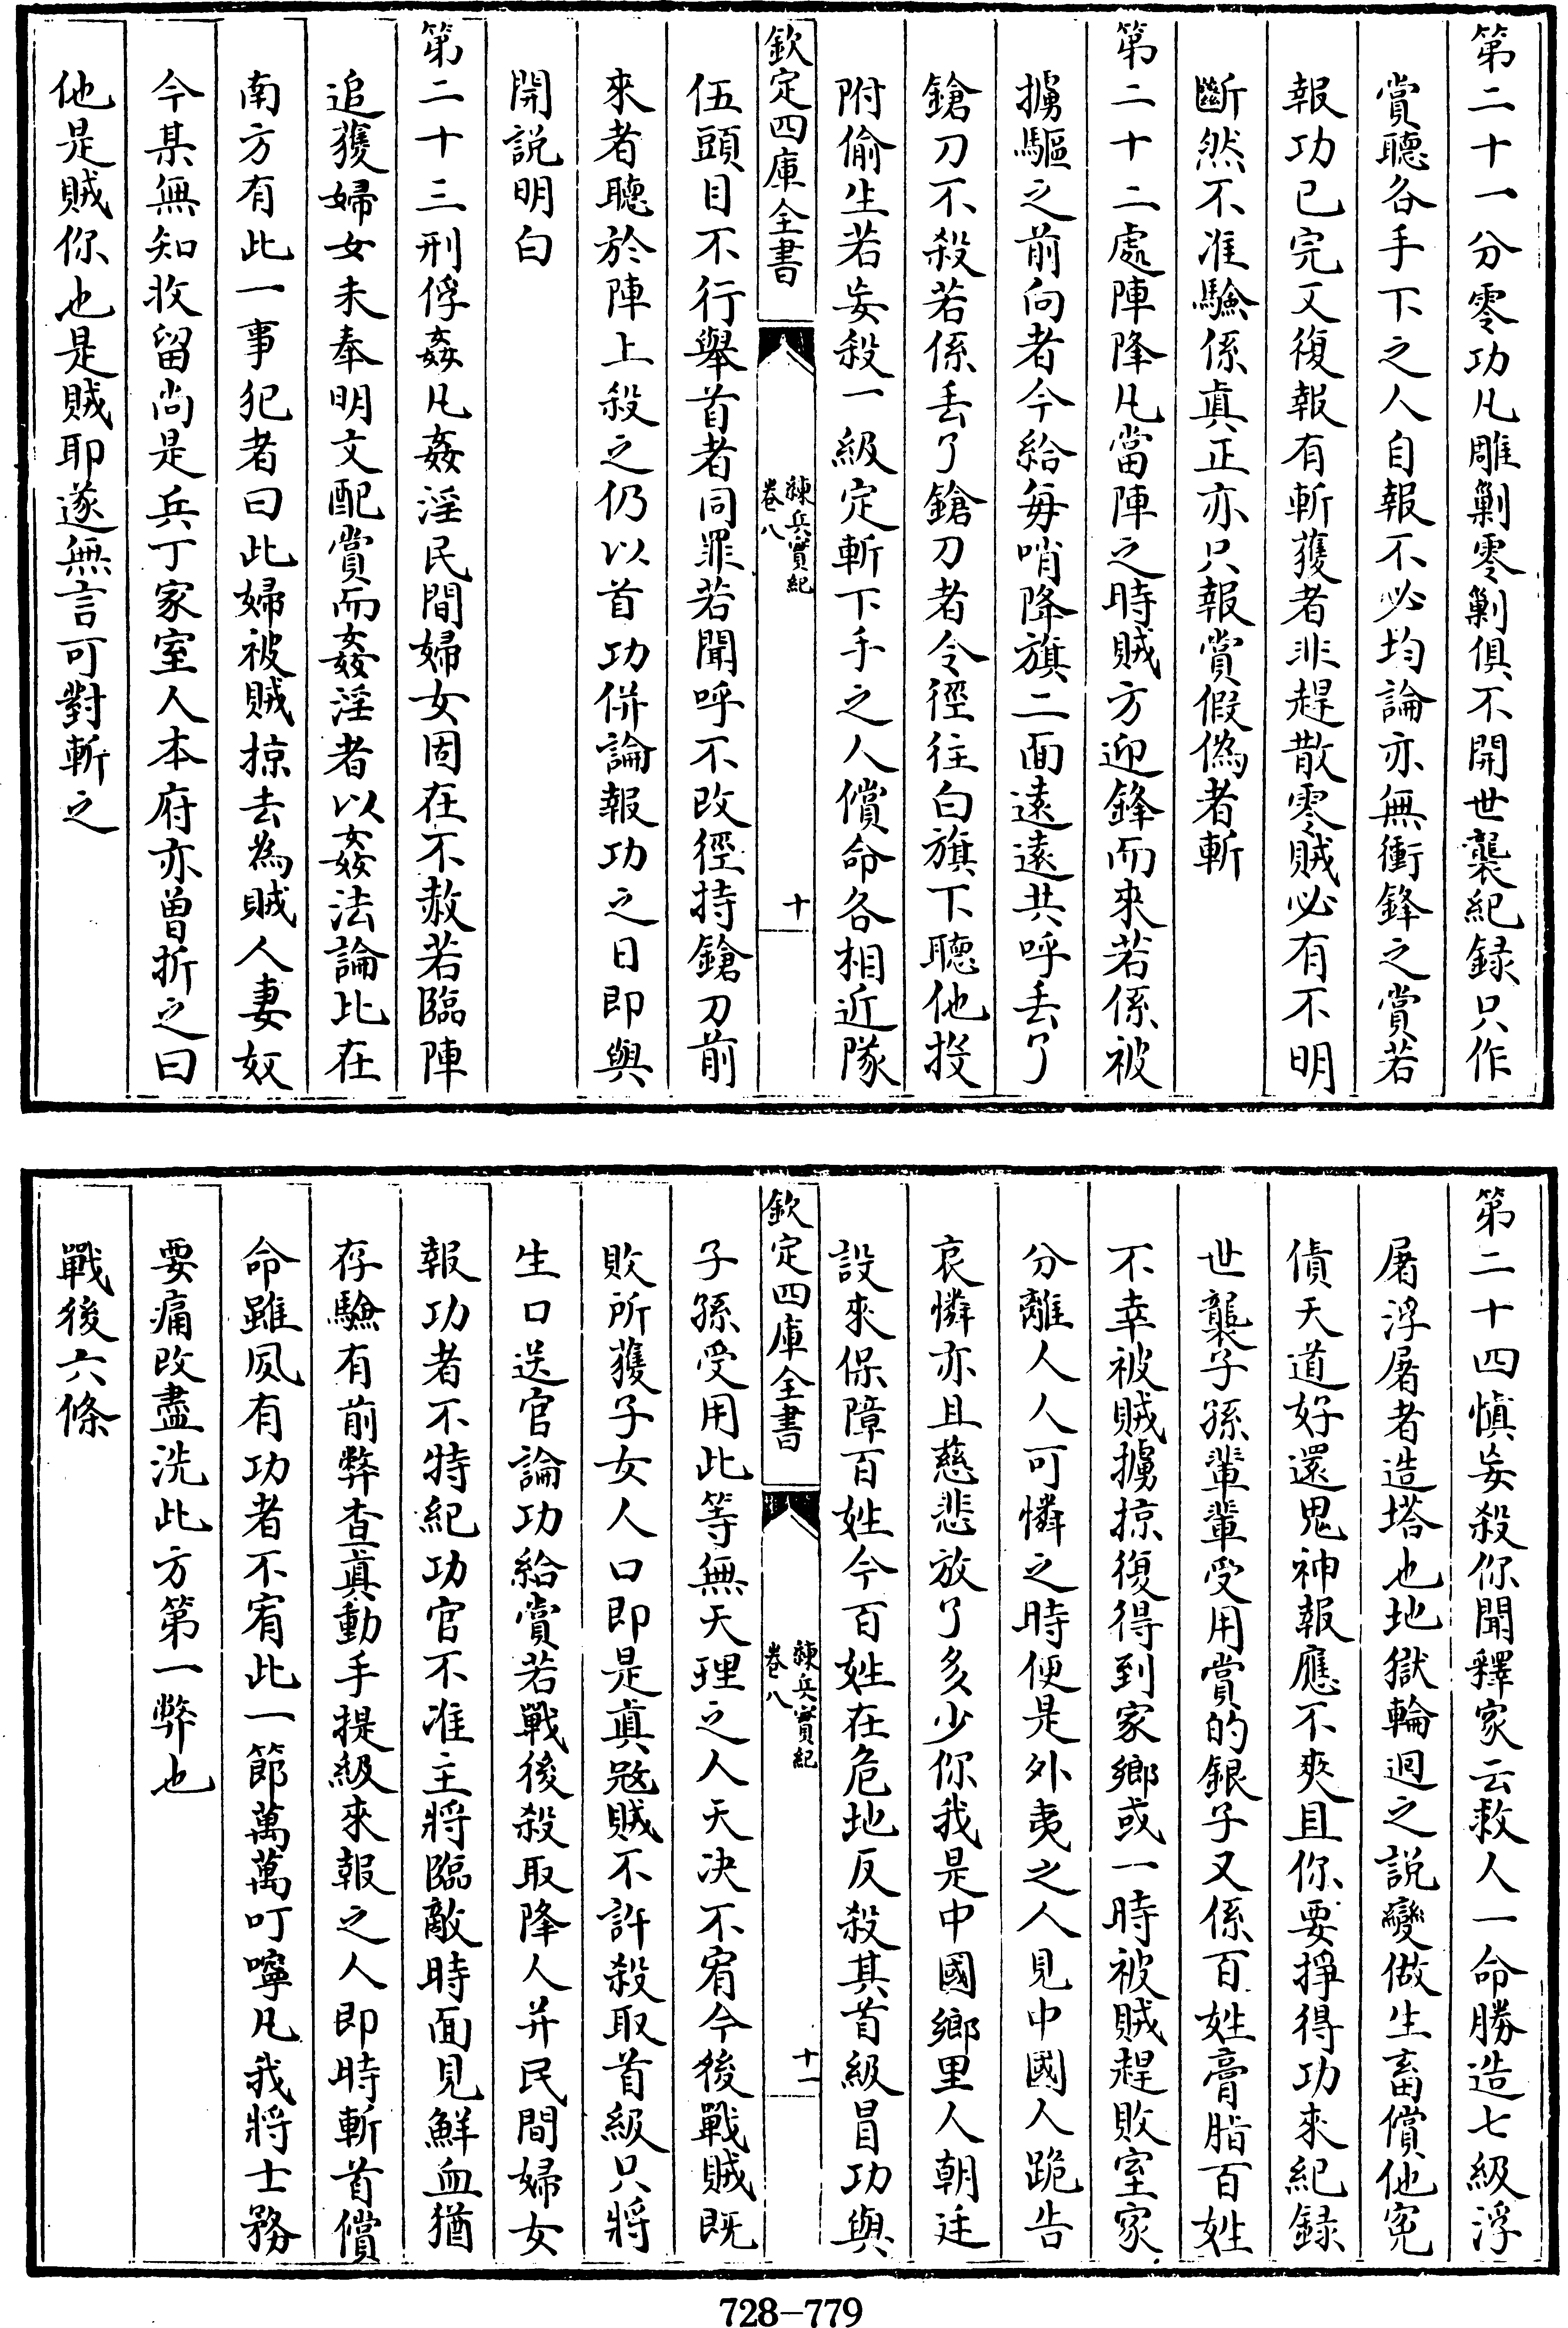 第二十一分零功凡雕剿零剿俱不開世襲紀録只作
賞聽各手下之人自報不必均論亦無衝鋒之賞若
報功已完又復報有斬獲者非趕散零賊必有不明
斷然不准驗係真正亦只報賞假偽者斬
第二十二處陣降凡當陣之時賊方迎鋒而來若係被
擄驅之前向者今給每哨降旗二面遠遠共呼丢了
鎗刀不殺若係丢了鎗刀者令徑往白旗下聽他投
附偷生若妄殺一級定斬下手之人償命各相近隊
欽定四庫全書
練兵實紀
卷八
十
伍頭目不行舉首者同罪若聞呼不改徑持鎗刀前
來者聽於陣上殺之仍以首功併論報功之日即與
開説明白
第二十三刑俘姦凡姦淫民間婦女固在不赦若臨陣
追獲婦女未奉明文配賞而姦淫者以姦法論比在
南方有此一事犯者曰此婦被賊掠去為賊人妻奴
今某無知收留尚是兵丁家室人本府亦曽折之曰
他是賊你也是賊耶遂無言可對斬之
第二十四慎妄殺你聞釋家云救人一命勝造七級浮
屠浮屠者造塔也地獄輪迴之說變做生畜償他寃
債天道好還鬼神報應不爽且你要掙得功來紀録
世襲子孫輩輩受用賞的銀子又係百姓膏脂百姓
不幸被賊擄掠復得到家鄉或一時被賊趕敗室家
分離人人可憐之時便是外夷之人見中國人跪告
哀憐亦且慈悲放了多少你我是中國鄉里人朝廷
設來保障百姓今百姓在危地反殺其首級冒功與
欽定四庫全書
練兵實紀
卷八
十一
子孫受用此等無天理之人天决不宥今後戰賊既
敗所獲子女人口即是真寇賊不許殺取首級只將
生口送官論功給賞若戰後殺取降人并民間婦女
報功者不特紀功官不准主將臨敵時面見鮮血猶
存驗有前弊查真動手提級來報之人即時斬首償
命雖夙有功者不宥此一節萬萬叮嚀凡我將士務
要痛改盡洗此方第一弊也
戰後六條
728-779